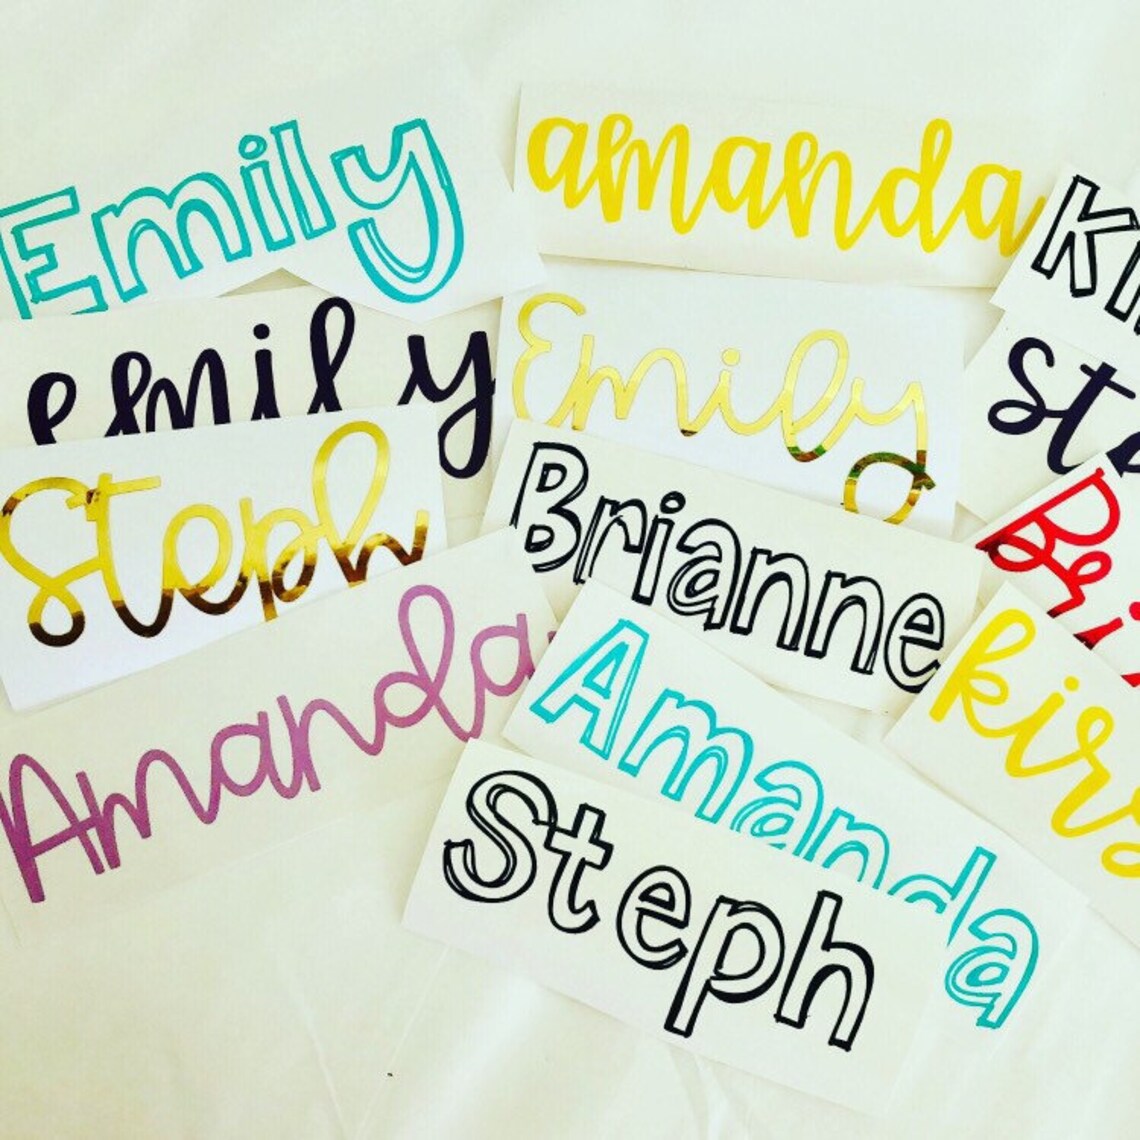 Emily
amanda
emily
Emily
Steph
Brianne
Amanda
Amanda
kirs
Steph